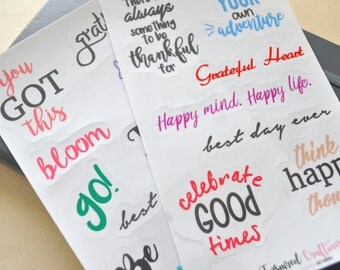 You
GOT
this
grat
bloom
go!
best
Be
There
always
something
to be
thankful
for
YOUR
own
adventure
Grateful Heart
Happy mind. Happy life.
best day ever
celebrate
GOOD
times
think
happ
thou
Inspired Craftin